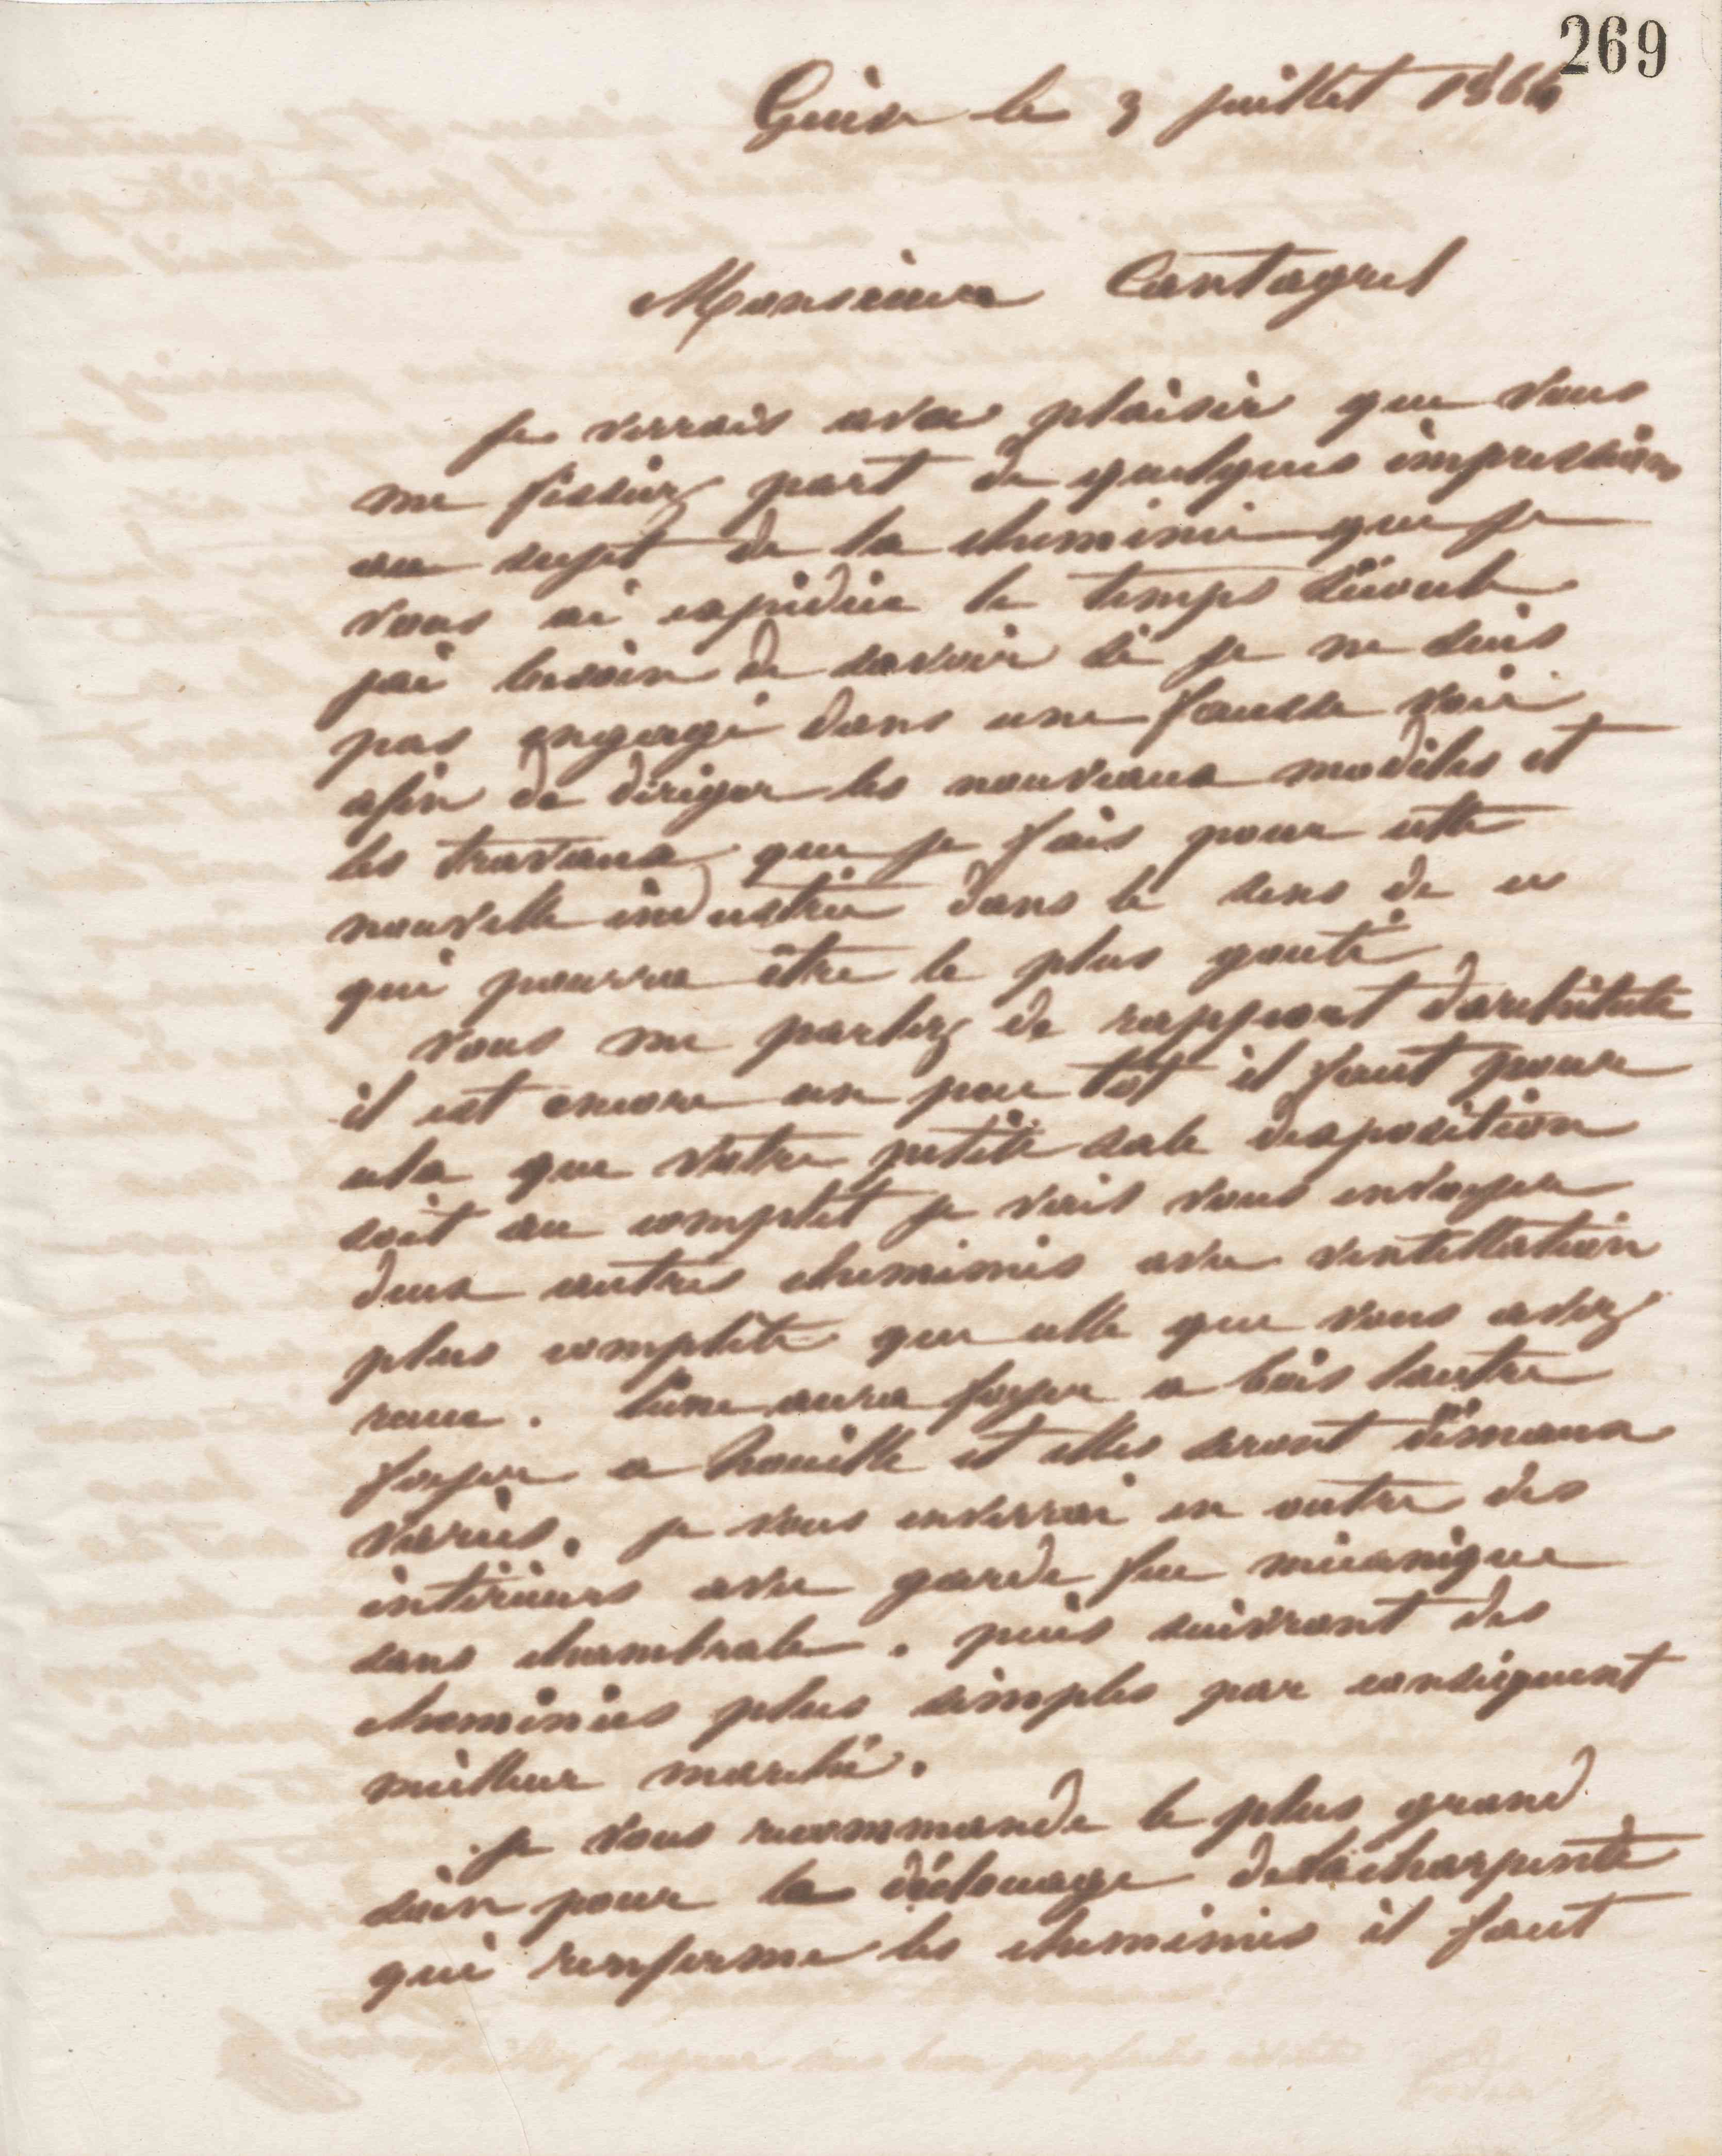 269
Guise le 3 juillet 1866
Monsieur Cantagrel
je verrais avec plaisir que vous
me fissiez part de quelques impressions
au sujet de la cheminée que je
vous ai expédiée le temps s'écoule
jai besoin de savoir si je ne suis
pas engagé dans une fausse voie
afin de diriger les nouveaux modèles et
les travaux que je fais pour cette
nouvelle industrie dans le sens de ce
qui pourra être le plus gouté
vous me parlez de rapport darchitecte
il est encore un peu tôt il faut pour
cela que votre petite sale desposition
soit au complet je vais vous envoyer
deux autres cheminées avec ventillation
plus complète que celle que vous avez
reçue. l'une aura foyer a bois lautre
foyer a houille et elles seront démaux
variés. je vous enverrai en outre des
intérieurs avec garde feu mécanique
sans chambrale. puis suivront des
cheminées plus simples par conséquent
meilleur marché.
je vous recommande le plus grand
soin pour le déclouage de la charpente
qui renferme les cheminées il faut